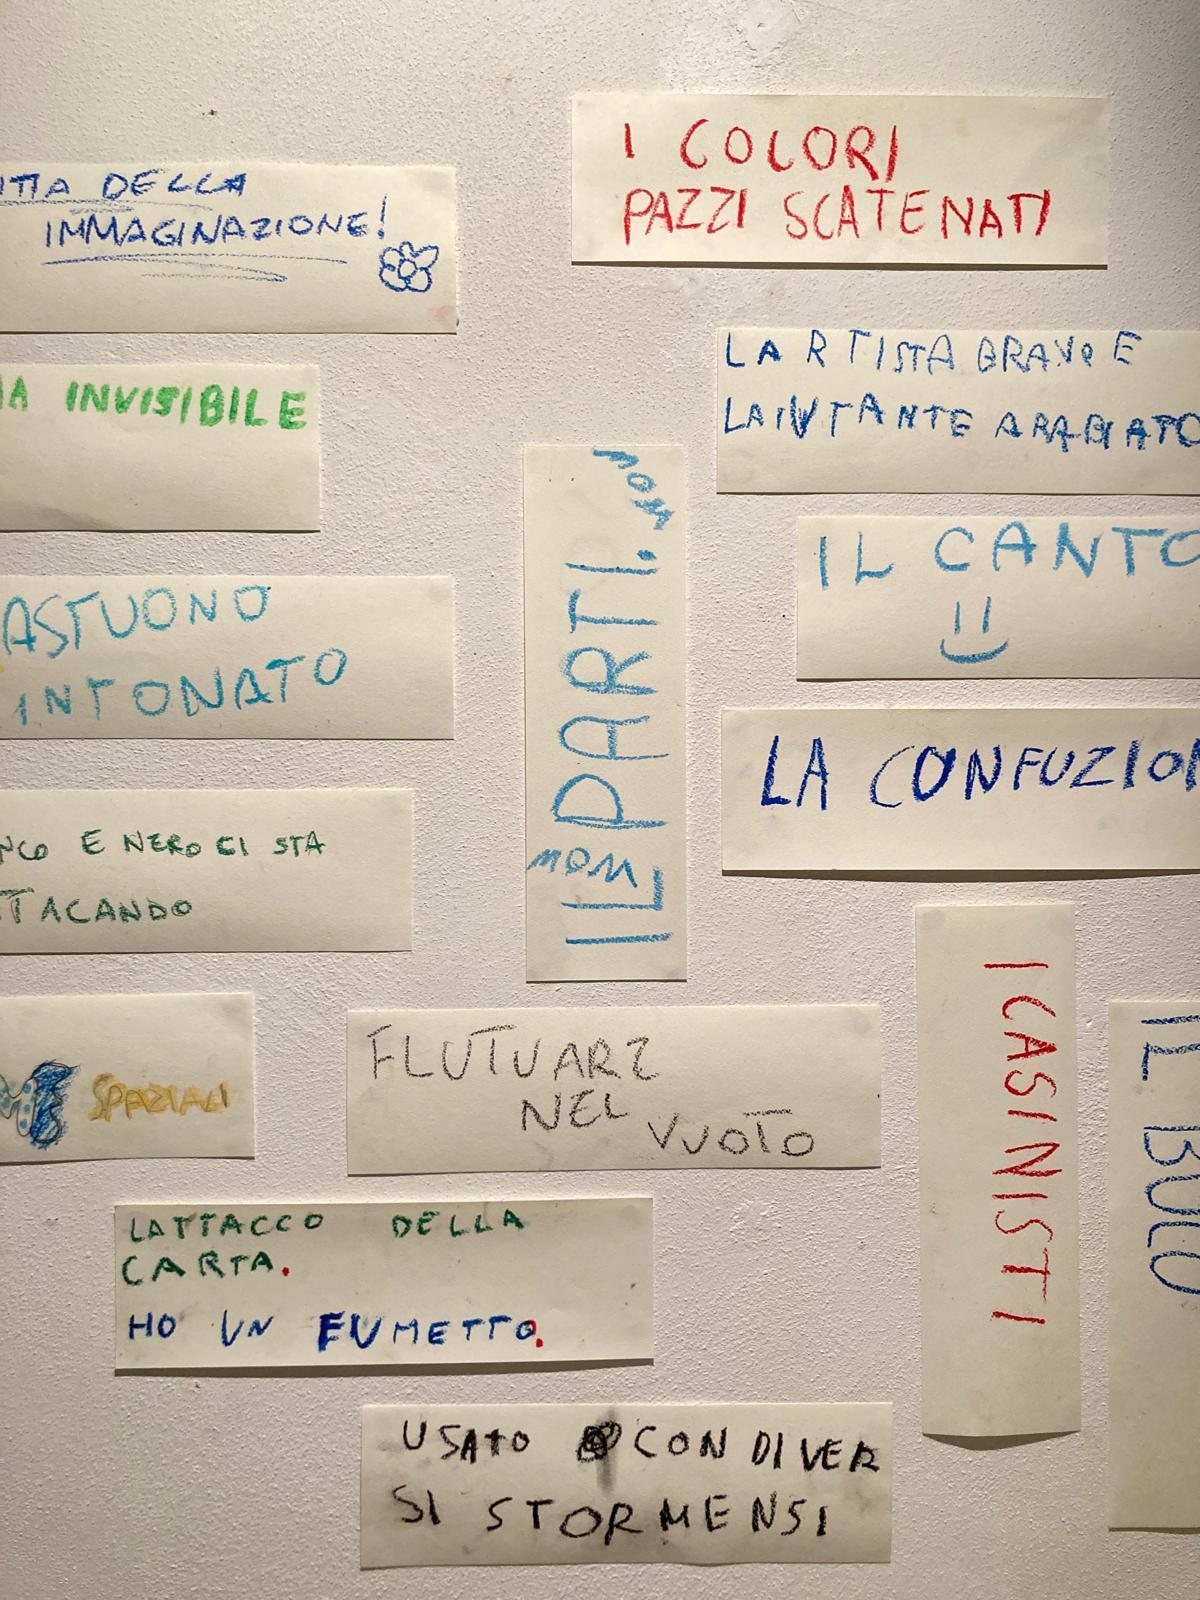 I COLORI
PAZZI SCATENATI
DELLA
IMMAGINAZIONE!
LARTISTA BRAVO E
LAIUTANTE ARABIATO
INVISIBILE
IL CANTO
ASTUONO
INTONATO
IL PARTI.
LA CONFUZION
NCO E NERO CI STA
TTACANDO
I CASINISTI
IL BUCO
SPAZIALI
FLUTUARE
NEL
VUOTO
LATTACCO DELLA
CARTA.
HO UN FUMETTO.
USATO CON DIVER
SI STORMENSI